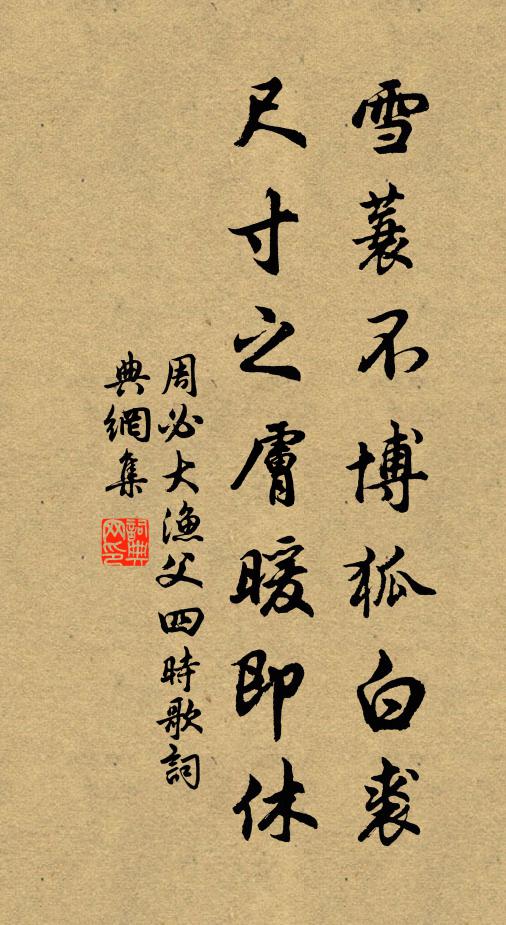 雪蓑不博狐白裘
尺寸之膚暖即休
周必大漁父四時歌詞
典網集
詞典網印